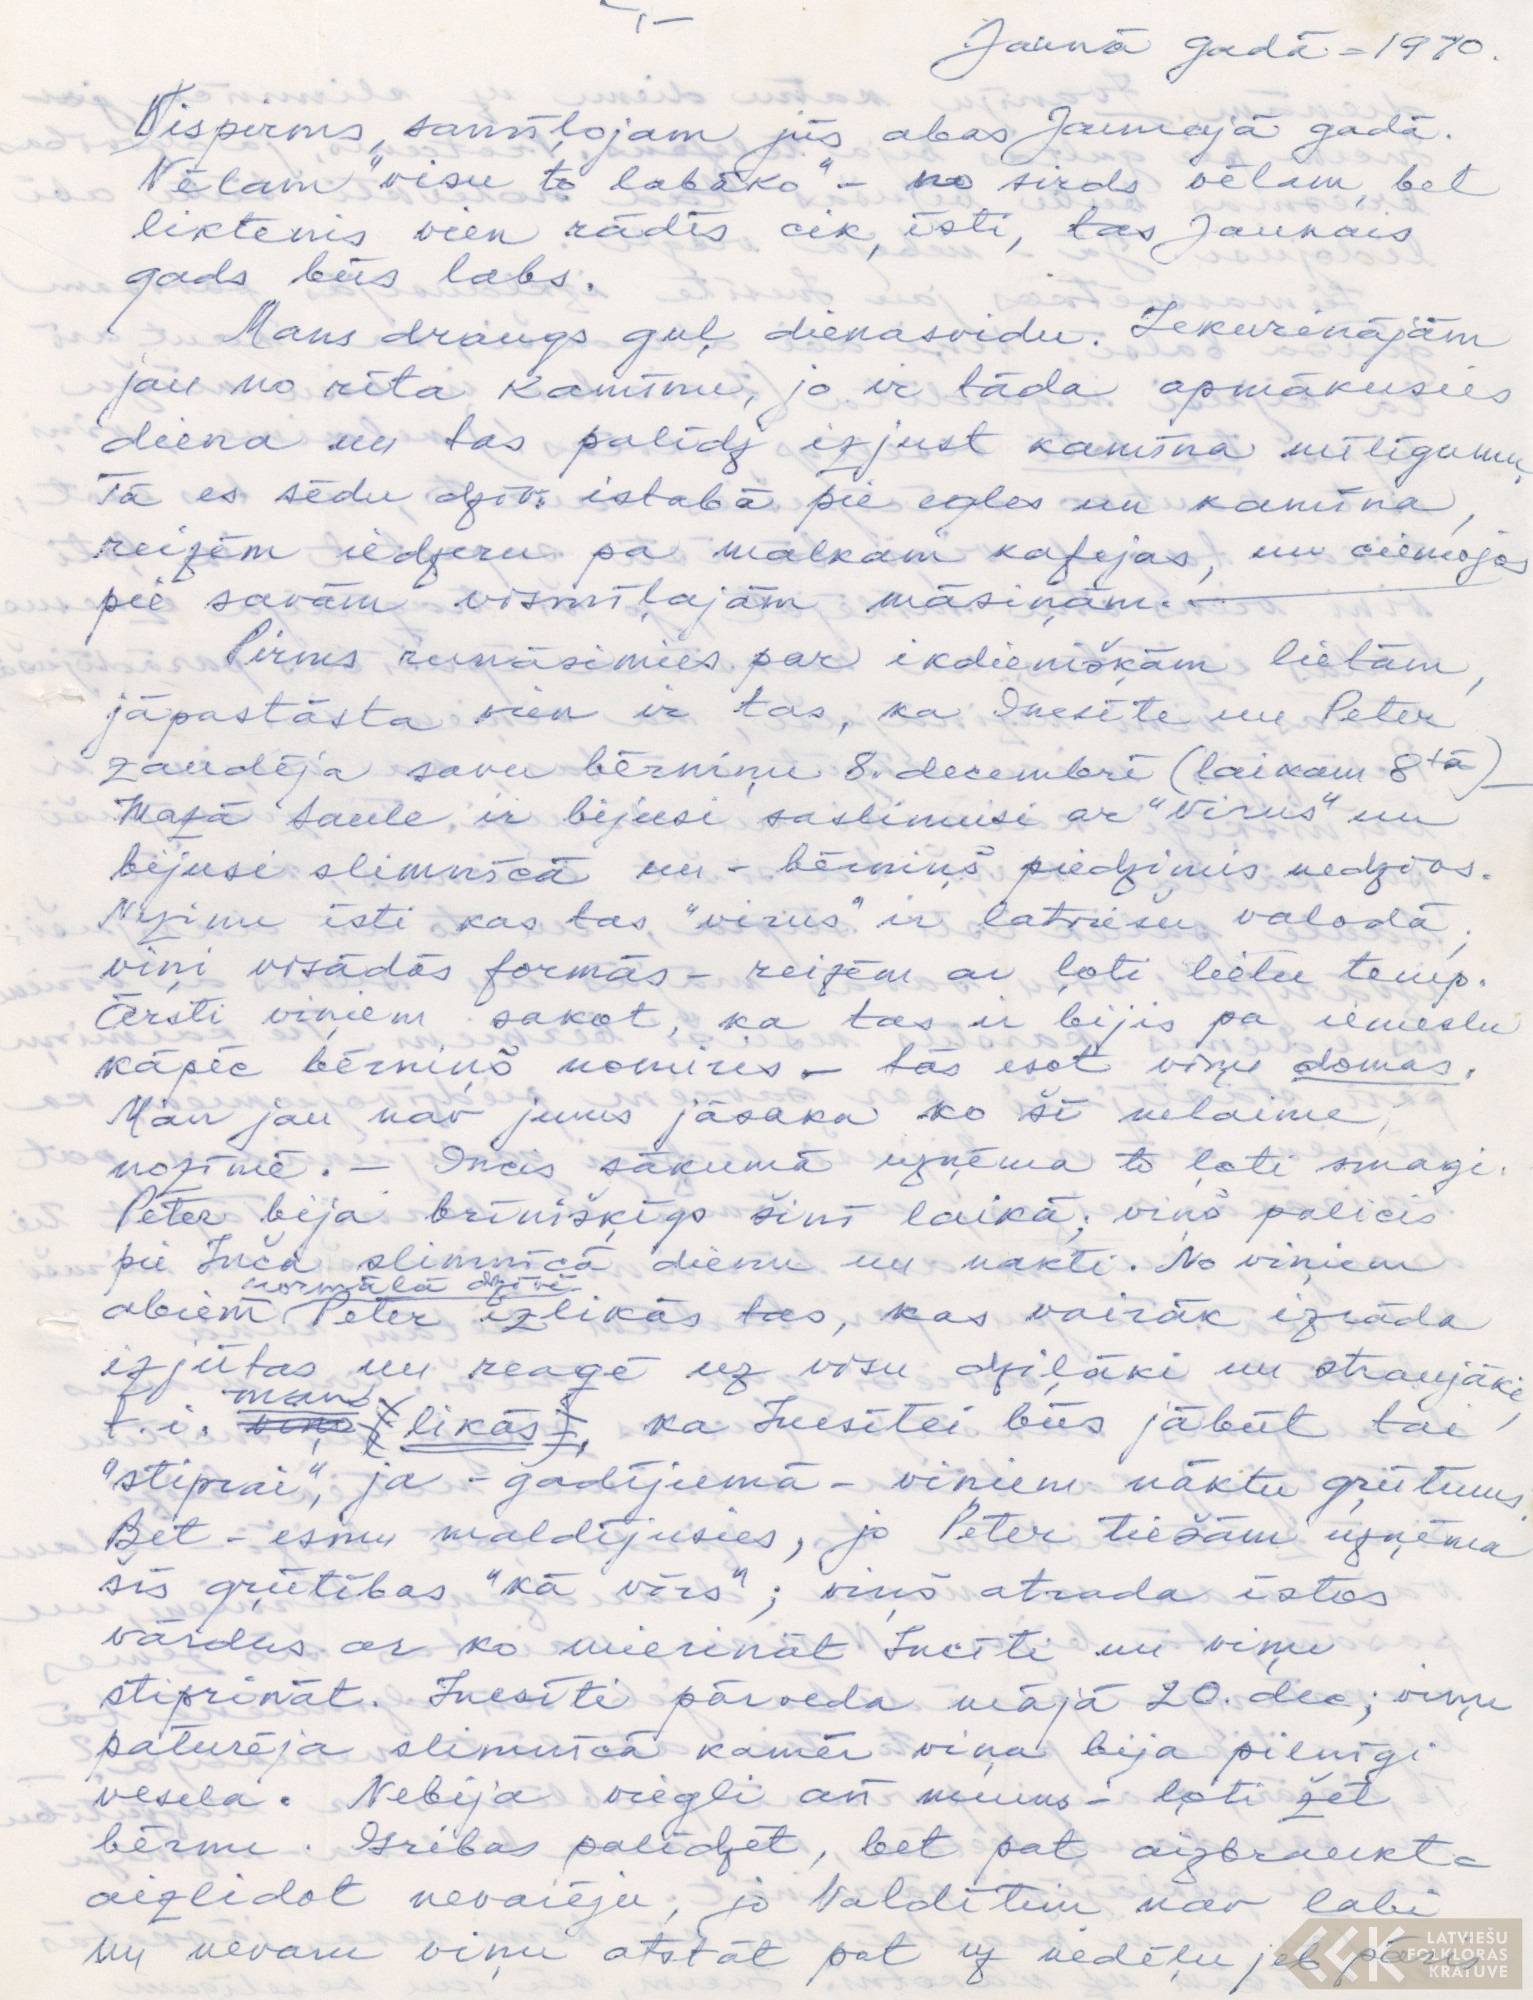 -1-
Jaunā gadā - 1970.
Vispirms, samīļojam jūs abas Jaunajā gadā.
Vēlam "visu to labāko" - no sirds vēlam, bet
liktenis vien rādīs cik, īsti, tas Jaunais
gads būs labs.
Mans draugs guļ dienasvidu. Iekurinājām
jau no rīta kamīnu, jo ir tāda apmākusies
diena un tas palīdz izjust kamīna mīlīgumu,
Tā es sēdu dzīv. istabā pie egles un kamīna,
reizēm iedzeru pa malkam kafejas, un ciemojos
pie savām vismīļajām māsiņām. -
Pirms runāsimies par ikdienišķām lietām,
jāpastāsta vien ir tas, ka Inesīte un Peter
zaudēja savu bērniņu 8. decembrī (laikam 8tā) -
Mazā Saule ir bijusi saslimusi ar "Virus" un
bijusi slimnīcā un - bērniņš piedzimis nedzīvs.
Nezinu īsti kas tas "virus" ir latviešu valodā,
viņi visādās formās - reizēm ar ļoti lielu temp.
Ārsti viņiem sakot, ka tas ir bijis pa iemeslu
kāpēc bērniņš nomiris - tās esot viņu domas.
Man jau nav jums jāsaka ko šī nelaime
nozīmē. - Incis sākumā uzņēma to ļoti smagi.
Peter bija brīnišķīgs šinī laikā; viņš palicis
pie Inča slimnīcā dienu un nakti. No viņiem
normālā dzīvē
abiem Peter izlikās tas, kas vairāk izrāda
izjūtas un reaģē uz visu dziļāki un straujāki,
man
t.i. viņu (likās), ka Inesītei būs jābūt tai
"stiprai", ja - gadījumā - viņiem nāktu grūtums.
Bet - esmu maldījusies, jo Peter tiešām uzņēma
šīs grūtības "kā vīrs"; viņš atrada īstos
vārdus ar ko mierināt Incīti un viņu
stiprināt. Inesīti pārveda mājā 20. dec; viņu
paturēja slimnīcā kamēr viņa bija pilnīgi
vesela. Nebija viegli arī mums - ļoti žēl
bērnu. Gribas palīdzēt, bet pat aizbraukt -
aizlidot nevarēju, jo Valdītim nav labi
un nevaru viņu atstāt pat uz nedēļu jeb pāris
LATVIEŠU
FOLKLORAS
KRĀTUVE